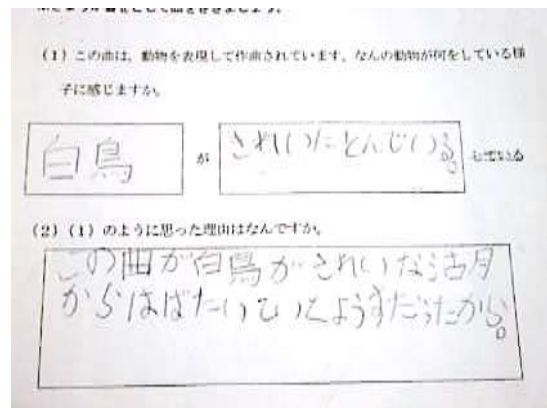 (1) この曲は、動物を表現して作曲されています。なんの動物が何をしている様
子に感じますか。
白鳥 が きれいにとんでいる。 している
(2)(1)のように思った理由はなんですか。
この曲が白鳥がきれいな湖
からはばたいていくようすだったから。